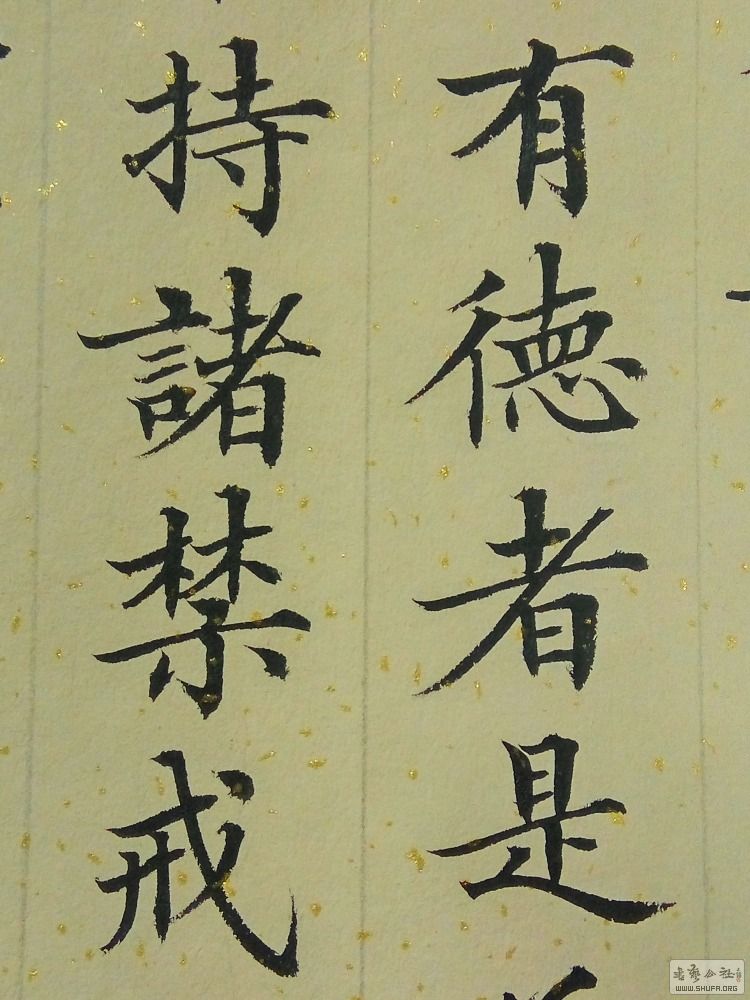 有德者是
持諸禁戒
書藝公社
WWW.SHUFA.ORG